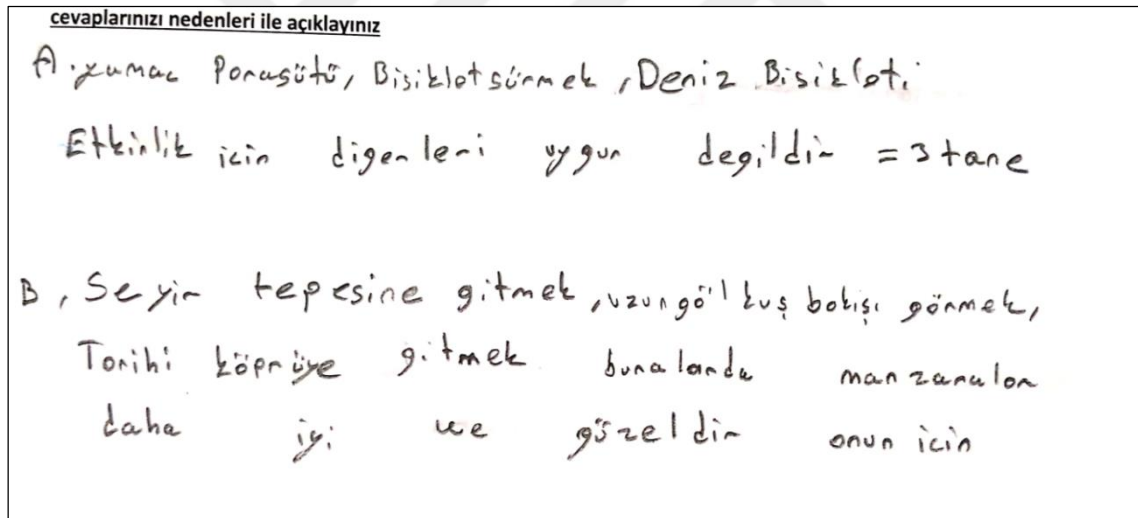 cevaplarınızı nedenleri ile açıklayınız
A. yamac Paraşütü, Bisiklet sürmek, Deniz Bisikleti
Etkinlik icin digerleri uygun degildir = 3 tane
B, Seyir tepesine gitmek, uzungöl kuş bakışı görmek,
Tarihi köprüye gitmek buralarda manzaralar
daha iyi ve güzeldir onun icin